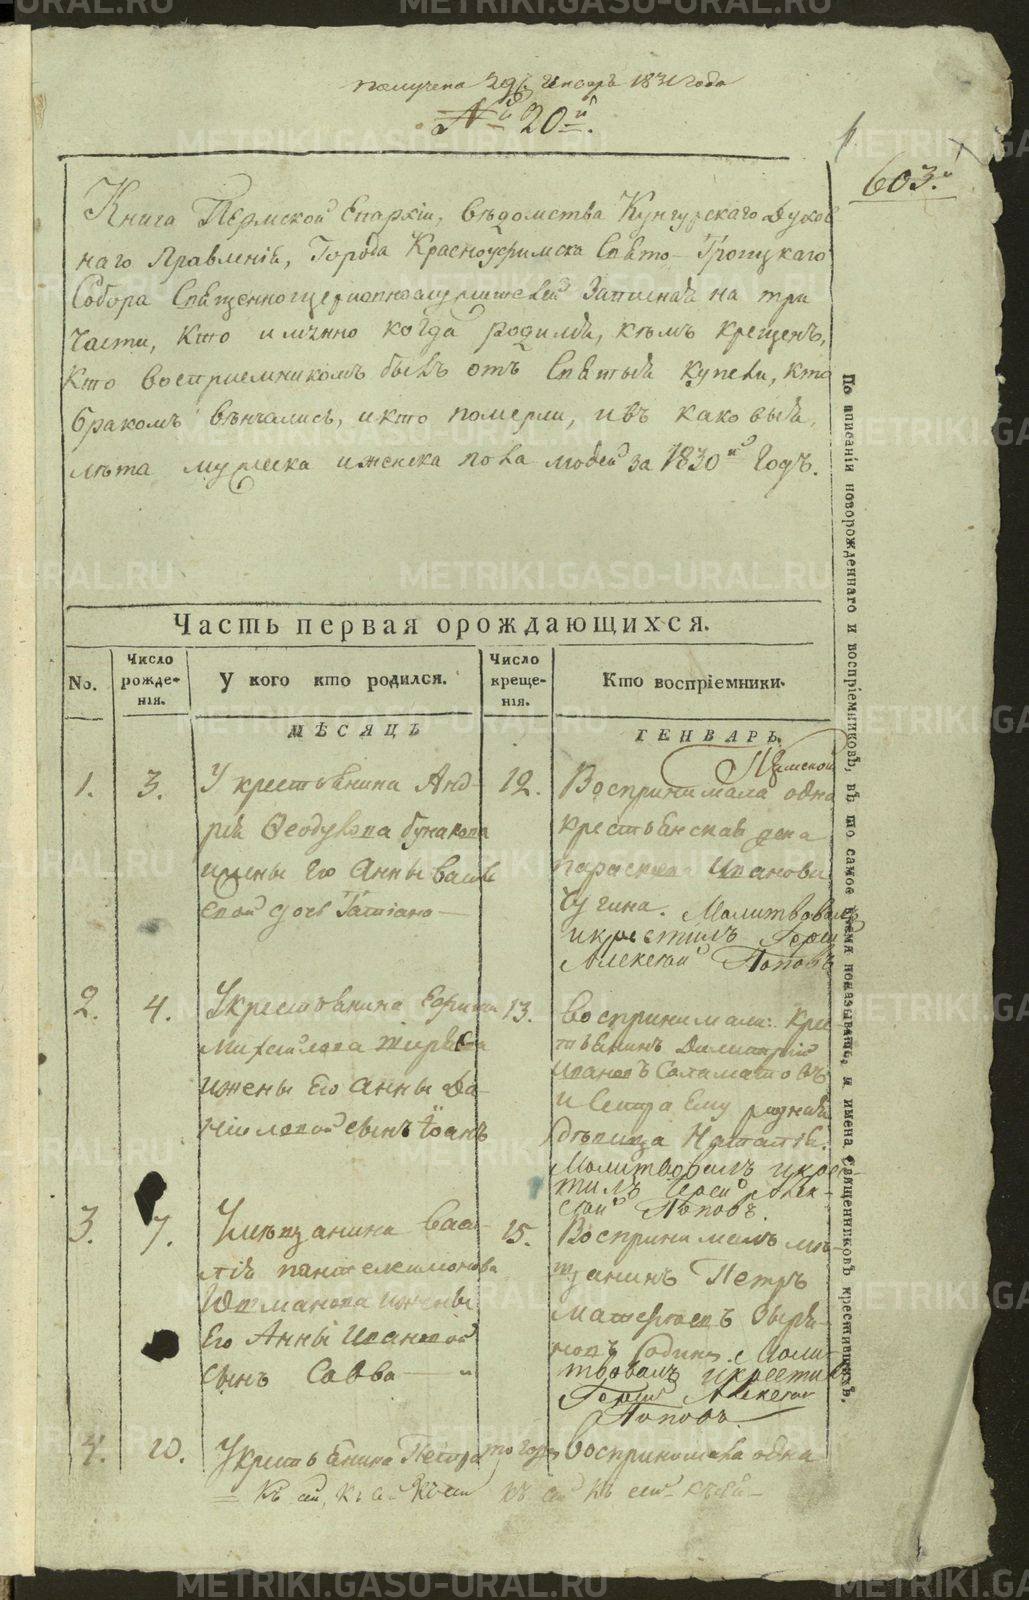 получена 29 Генваря 1831 года
№ 20й.
603.
Книга Пермской Епархіи, вѣдомства Кунгурскаго Духов
наго Правленія, Города Красноуфимска Свято-Троицкаго
Собора Священноцерковнослужителей Записная на три
части, кто имянно когда родился, кѣмъ крещенъ,
кто воспріемникомъ былъ отъ Святыя купели, кто
бракомъ вѣнчались, и кто померли, и въ каковыя
лѣта мужеска и женска пола людей за 1830й Годъ.
Часть первая о рождающихся.
No.
Число рожде-нія.
У кого кто родился.
Число креще-нія.
Кто воспріемники.
МѢСЯЦЪ ГЕНВАРЬ
1. 3.
У крестьянина Анд-
рея Ѳеодулова Бунакова
и жены Его Анны Василь
евой дочь Татіана
12.
Воспринимала одна
крестьянская жена
Параскева Иванова
Молитвовалъ
и крестилъ Іерей
Алексей Поповъ
2. 4.
У крестьянина Ефима
Михайлова
и жены Его Анны Да-
ниловой сынъ Іоанъ
13.
Воспринимали: Крес-
тьянинъ Димитрій
Ивановъ Саламатовъ
и Сестра Ему родная
дѣвица Наталія.
Молитвовалъ и крес-
тилъ Іерей Алек-
сей Поповъ.
3. 7.
У мѣщанина Васи-
лія Пантелеимонова
Шотманова и жены
Его Анны Ивановой
сынъ Савва
15.
Воспринималъ мѣ-
щанинъ Петръ
Молит-
твовалъ и крестилъ
Іерей Алексей
Поповъ.
4. 10.
У крестьянина Петра
того же
воспринимала одна
По вписаніи новорожденнаго и воспріемниковъ, въ то самое время показывать, и имена Священниковъ крестившихъ.
METRIKI.GASO-URAL.RU